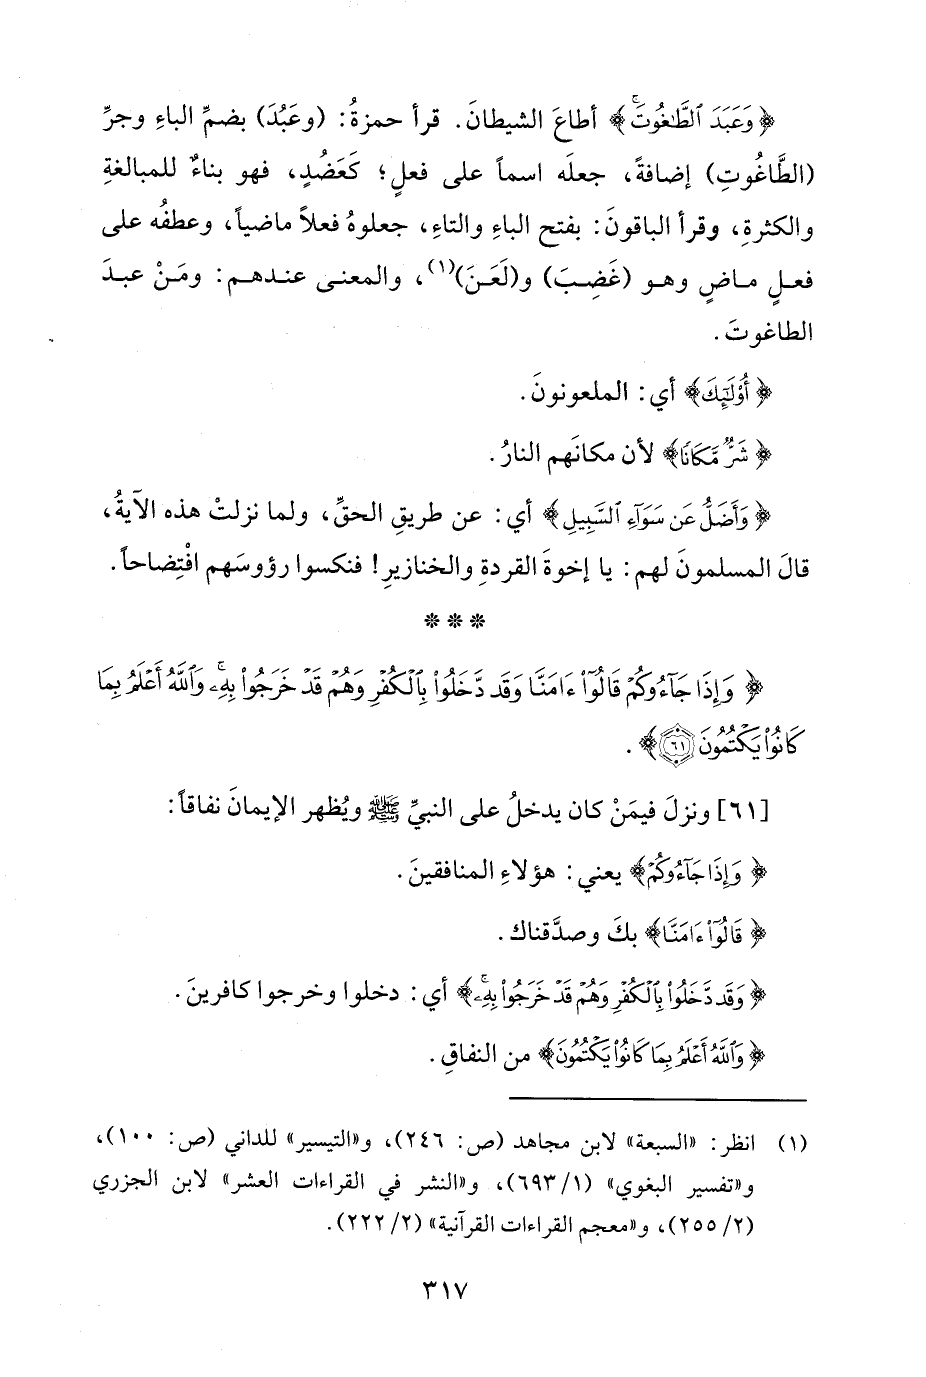 ﴿وَعَبَدَ ٱلطَّـٰغُوتَۚ﴾ أطاعَ الشيطانَ. قرأ حمزةُ: (وعَبُدَ) بضمِّ الباءِ وجرِّ
(الطَّاغُوتِ) إضافةً، جعلَه اسماً على فعلٍ؛ كَعَضُدٍ، فهو بناءٌ للمبالغةِ
والكثرةِ، وقرأ الباقونَ: بفتح الباءِ والتاءِ، جعلوهُ فعلاً ماضياً، وعطفُه على
فعلٍ ماضٍ وهو (غَضِبَ) و(لَعَنَ)(١)، والمعنى عندهم: ومَنْ عبدَ
الطاغوتَ.
﴿أُوْلَـٰٓئِكَ﴾ أي: الملعونونَ.
﴿شَرٌّ مَّكَانًا﴾ لأن مكانَهم النارُ.
﴿وَأَضَلُّ عَن سَوَآءِ ٱلسَّبِيلِ﴾ أي: عن طريقِ الحقِّ، ولما نزلتْ هذه الآيةُ،
قالَ المسلمونَ لهم: يا إخوةَ القردةِ والخنازيرِ! فنكسوا رؤوسَهم افْتِضاحاً.
* * *
﴿وَإِذَا جَآءُوكُمْ قَالُوٓاْ ءَامَنَّا وَقَد دَّخَلُواْ بِٱلْكُفْرِ وَهُمْ قَدْ خَرَجُواْ بِهِۦۚ وَٱللَّهُ أَعْلَمُ بِمَا
كَانُواْ يَكْتُمُونَ ٦١﴾.
[٦١] ونزلَ فيمَنْ كان يدخلُ على النبيِّ ﷺ ويُظهر الإيمانَ نفاقاً:
﴿وَإِذَا جَآءُوكُمْ﴾ يعني: هؤلاءِ المنافقينَ.
﴿قَالُوٓاْ ءَامَنَّا﴾ بكَ وصدَّقناك.
﴿وَقَد دَّخَلُواْ بِٱلْكُفْرِ وَهُمْ قَدْ خَرَجُواْ بِهِۦۚ﴾ أي: دخلوا وخرجوا كافرينَ.
﴿وَٱللَّهُ أَعْلَمُ بِمَا كَانُواْ يَكْتُمُونَ﴾ من النفاقِ.
(١) انظر: «السبعة» لابن مجاهد (ص: ٢٤٦)، و«التيسير» للداني (ص: ١٠٠)،
و«تفسير البغوي» (١/ ٦٩٣)، و«النشر في القراءات العشر» لابن الجزري
(٢/ ٢٥٥)، و«معجم القراءات القرآنية» (٢/ ٢٢٢).
٣١٧